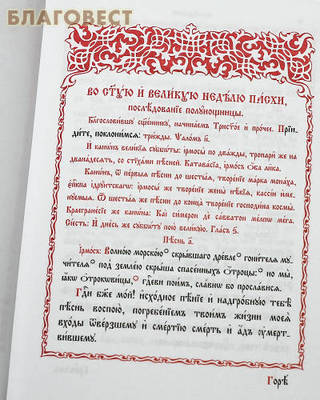 БЛАГОВЕСТ
ВО СТ҃У́Ю И҆ ВЕЛИ́КУЮ НЕДѢ́ЛЮ ПА́СХИ,
ПОСЛѢ́ДОВАНІЕ ПОЛУ́НОЩНИЦЫ.
Бл҃гослови́вшу сщ҃е́ннику, начина́емъ Трист҃о́е и҆ про́чее. Прїи-
ди́те, поклони́мсѧ: три́жды. Ѱало́мъ н҃.
И҆ кано́нъ вели́кїѧ суббѡ́ты: і҆рмосы̀ по два́жды, тропари́ же на
двана́десѧть, со стїхѝ пѣ́сней. Катава́сїа, і҆рмо́съ
Канѡ́нъ, ѿ пе́рвыѧ пѣ́сни до шесты́ѧ, творе́нїе ма́рка мона́ха,
і҆рмосы́ же творе́нїе жены̀ нѣ́кїѧ, кассі́и и҆ме-
ну́емыѧ. Ѿ шесты́ѧ же пѣ́сни до конца̀ творе́нїе господи́на космы̀.
Краегране́сїе же кано́на: Каѝ си́мерон дѐ са́вватон ме́лѡ ме́га.
Си́есть: И҆ дне́сь же суббѡ́ту пою̀ вели́кую. Гла́съ ѕ҃.
Пѣ́снь а҃.
І҆рмо́съ: Волно́ю морско́ю скры́вшаго дре́вле гони́телѧ му-
чи́телѧ под̾ земле́ю скры́ша спасе́нныхъ ѻ҆́троцы: но мы̀,
ꙗ҆́кѡ ѻ҆трокови̑цы, гдⷭ҇еви пои́мъ, сла́внѡ бо просла́висѧ.
Гдⷭ҇и бж҃е мо́й! и҆схо́дное пѣ́нїе и҆ надгро́бную тебѣ̀
пѣ́снь воспою̀, погребе́нїемъ твои́мъ жи́зни моеѧ̀
вхо́ды ѿве́рзшему и҆ сме́ртїю сме́рть и҆ а҆́дъ оу҆мерт-
ви́вшему.
Горѣ̀